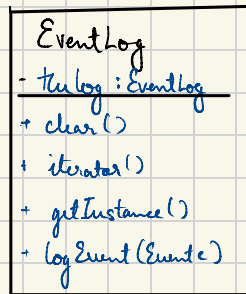 EventLog
- theLog : EventLog
+ clear()
+ iterator()
+ getInstance()
+ logEvent(Event e)